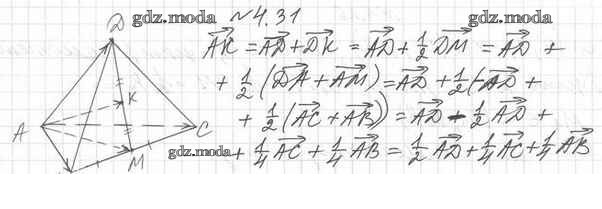 gdz.moda №4.31 gdz.moda
D
AK = AD + DK = AD + 1/2 DM = AD +
+ 1/2 (DA + AM) = AD + 1/2 (-AD +
K
+ 1/2 (AC + AB)) = AD - 1/2 AD +
A
C
gdz.moda + 1/4 AC + 1/4 AB = 1/2 AD + 1/4 AC + 1/4 AB
M